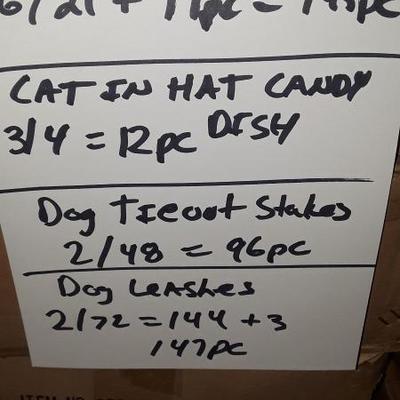 CAT IN HAT CANDY
3/4 = 12pc DISH
Dog Tieout Stakes
2/48 = 96pc
Dog Leashes
2/72 = 144 + 3
147pc